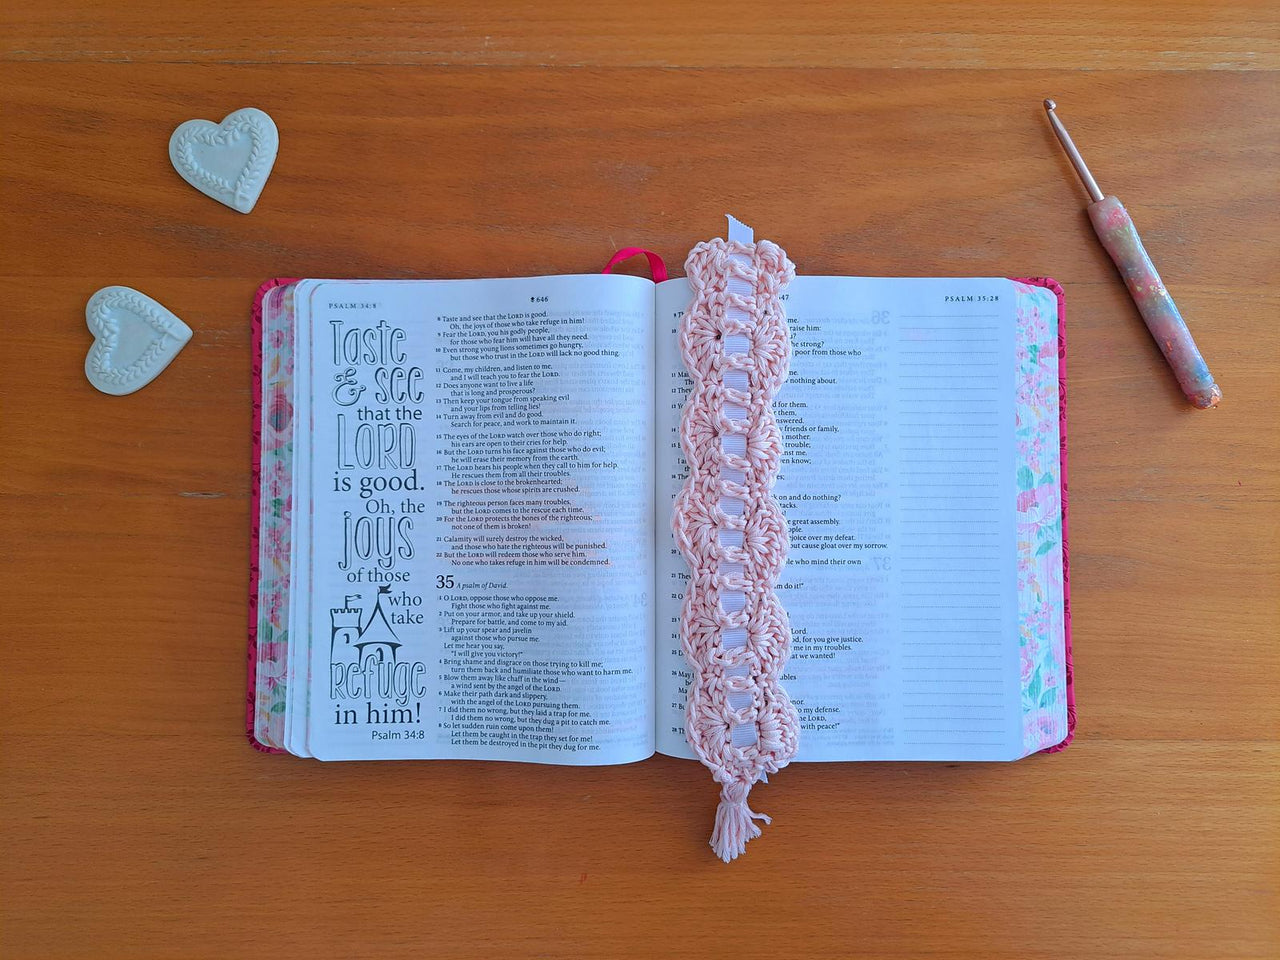 PSALM 34:8
646
Taste
& see
that the
LORD
is good.
Oh, the
joys
of those
who
take
refuge
in him!
Psalm 34:8
8 Taste and see that the LORD is good.
Oh, the joys of those who take refuge in him!
9 Fear the LORD, you his godly people,
for those who fear him will have all they need.
10 Even strong young lions sometimes go hungry,
but those who trust in the LORD will lack no good thing.
11 Come, my children, and listen to me,
and I will teach you to fear the LORD.
12 Does anyone want to live a life
that is long and prosperous?
13 Then keep your tongue from speaking evil
and your lips from telling lies!
14 Turn away from evil and do good.
Search for peace, and work to maintain it.
15 The eyes of the LORD watch over those who do right;
his ears are open to their cries for help.
16 But the LORD turns his face against those who do evil;
he will erase their memory from the earth.
17 The LORD hears his people when they call to him for help.
He rescues them from all their troubles.
18 The LORD is close to the brokenhearted;
he rescues those whose spirits are crushed.
19 The righteous person faces many troubles,
but the LORD comes to the rescue each time.
20 For the LORD protects the bones of the righteous;
not one of them is broken!
21 Calamity will surely destroy the wicked,
and those who hate the righteous will be punished.
22 But the LORD will redeem those who serve him.
No one who takes refuge in him will be condemned.
35 A psalm of David.
1 O LORD, oppose those who oppose me.
Fight those who fight against me.
2 Put on your armor, and take up your shield.
Prepare for battle, and come to my aid.
3 Lift up your spear and javelin
against those who pursue me.
Let me hear you say,
"I will give you victory!"
4 Bring shame and disgrace on those trying to kill me;
turn them back and humiliate those who want to harm me.
5 Blow them away like chaff in the wind—
a wind sent by the angel of the LORD.
6 Make their path dark and slippery,
with the angel of the LORD pursuing them.
7 I did them no wrong, but they laid a trap for me.
I did them no wrong, but they dug a pit to catch me.
8 So let sudden ruin come upon them!
Let them be caught in the trap they set for me!
Let them be destroyed in the pit they dug for me.
47
PSALM 35:28
me.
raise him:
be strong?
poor from those who
me.
nothing about.
for them.
them,
answered.
friends or family,
mother.
trouble;
me.
know;
on and do nothing?
great assembly.
rejoice over my defeat.
but cause gloat over my sorrow.
le who mind their own
do it!"
Lord.
for you give justice.
me in my troubles.
we wanted!
to my defense.
LORD,
with peace!"